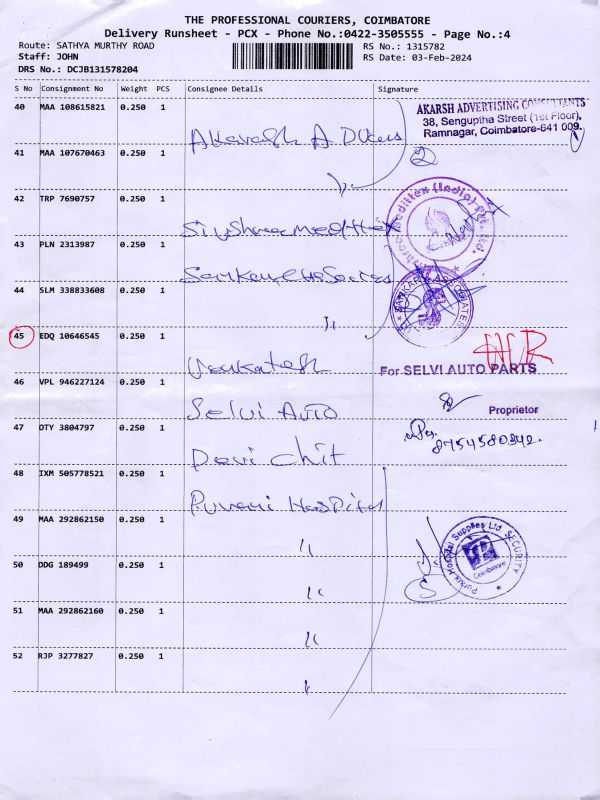 THE PROFESSIONAL COURIERS, COIMBATORE
Delivery Runsheet - PCX - Phone No.:0422-3505555 - Page No.:4
Route: SATHYA MURTHY ROAD
RS No.: 1315782
Staff: JOHN
RS Date: 03-Feb-2024
DRS No.: DCJB131578204
S No Consignment No Weight PCS Consignee Details Signature
40 MAA 108615821 0.250 1
AKARSH ADVERTISING CONSULTANTS
38, Senguptha Street (1st Floor),
Ramnagar, Coimbatore-641 009.
41 MAA 107670463 0.250 1
42 TRP 7690757 0.250 1
43 PLN 2313987 0.250 1
44 SLM 338833608 0.250 1
SANKARA ASSOCIATES
45 EDQ 10646545 0.250 1
Venkatesh
For SELVI AUTO PARTS
46 VPL 946227124 0.250 1
Selvi Auto
Proprietor
47 DTY 3804797 0.250 1
8754580842.
Devi chit
48 IXM 505778521 0.250 1
Purani Hospital
49 MAA 292862150 0.250 1
"
Hospital Supplies Ltd SECURITY
Coimbatore
50 DDG 189499 0.250 1
"
51 MAA 292862160 0.250 1
"
52 RJP 3277827 0.250 1